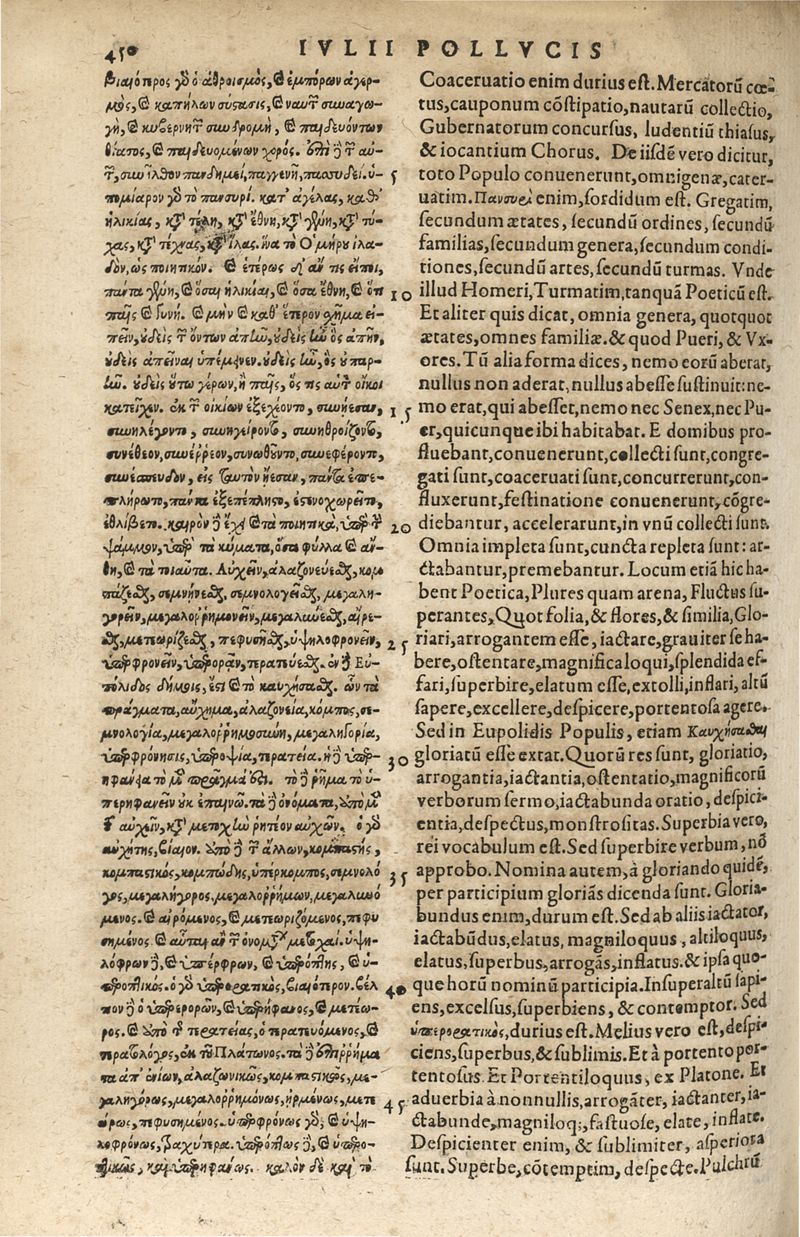 450 IVLII POLLVCIS
βιαιότερος γὸ ὁ ἀθροισμὸς, καὶ ἐμπόρων ἀγερ-
μὸς, καὶ καπήλων σύστασις, καὶ ναυτῶν συναγω-
γὴ, καὶ κυβερνητῶν συνδρομὴ, καὶ παιδευόντων
θίασος, καὶ παιδευομένων χορός. ἐπὶ δὲ τῶν αὐ-
τῶν, συνῆλθον πανδημεὶ, παγγενῆ, πασσυδεί. ῥυ-
πομίαρον γὸ τὸ πανσυρί. κατ' ἀγέλας, καθ'
ἡλικίας, κατὰ τέλη, κατὰ ἔθνη, κατὰ γένη, κατὰ τύ-
χας, κατὰ τέχνας, κατὰ ἴλας. ἵνα τὸ Ὁμήρου ἰλα-
δὸν, ὡς ποιητικόν. καὶ ἑτέρως δ' ἄν τις εἴποι,
πάντα γένη, καὶ ὅσαι ἡλικίαι, καὶ ὅσα ἔθνη, καὶ ὅτι
παῖς καὶ γυνή. καὶ μὴν καὶ καθ' ἕτερον σχῆμα εἰ-
πεῖν, οὐδεὶς τῶν ὄντων ἀπῶν, οὐδεὶς ἦν ὃς ἀπῆν,
οὐδεὶς ἀπεῖναι ὑπέμεινεν. οὐδεὶς ἦν, ὃς οὐ παρ-
ῆν. οὐδεὶς οὕτω γέρων, ἢ παῖς, ὅς τις αὐτῶν οἴκοι
κατεῖχεν. ἐκ τῶν οἰκιῶν ἐξεχέοντο, συνῄεσαν,
συνηλέγοντο, συνηγείροντο, συνηθροίζοντο,
συνέθεον, συνέρρεον, συνωθοῦντο, συνεφέροντο,
συνέσπευδον, εἰς ταυτὸν ᾔεσαν, πάντα ἐπε-
πλήρωτο, πάντα ἐξεπέπληστο, ἐστενοχωρεῖτο,
ἐθλίβετο. καιρὸν δὲ ἔχει καὶ τὰ ποιητικὰ, ὑπὲρ τὴν
ψάμμον, ὑπὲρ τὰ κύματα, ὅσα φύλλα καὶ ἄν-
θη, καὶ τὰ τοιαῦτα. Αὐχεῖν, ἀλαζονεύεσθαι, κομ-
πάζεσθαι, σεμνύνεσθαι, σεμνολογεῖσθαι, μεγαλη-
γορεῖν, μεγαλορρημονεῖν, μεγαλαυχεῖσθαι, αἴρε-
σθαι, μετεωρίζεσθαι, πεφυσῆσθαι, ὑψηλοφρονεῖν,
ὑπερφρονεῖν, ὑπερορᾶν, τερατεύεσθαι. ἐν δὲ Εὐ-
πόλιδος δήμοις, ἔστι καὶ τὸ καυχήσασθαι. ὧν τὰ
πράγματα, αὔχημα, ἀλαζονεία, κόμπος, σε-
μνολογία, μεγαλορρημοσύνη, μεγαληγορία,
ὑπερφρόνησις, ὑπεροψία, τερατεία. ἡ δὲ ὑπερ-
ηφανία τὸ μὲν πρᾶγμά ἐστι. τὸ δὲ ῥῆμα τὸ ὑ-
περηφανεῖν οὐκ ἐπαινῶ. τὰ δὲ ὀνόματα, ἀπὸ μὲν
τοῦ αὐχεῖν, κατὰ μετοχὴν ῥητέον αὐχῶν. ὁ γὸ
αὐχητὴς, βίαιον. ἀπὸ δὲ τῶν ἄλλων, κομπαστὴς,
κομπαστικὸς, κομπώδης, ὑπέρκομπος, σεμνολό
γος, μεγαλήγορος, μεγαλορρήμων, μεγαλαυχό
μενος. καὶ αἰρόμενος, καὶ μετεωριζόμενος, πεφυ
σημένος. καὶ αὗται αἱ τῶν ὀνομάτων μετοχαί. ὑψη-
λόφρων δὲ, καὶ ὑπέρφρων, καὶ ὑπερόπτης, καὶ ὑ-
περοπτικός. ὁ γὸ ὑπεροραтικὸς, βιαιότερον. βέλ
τιον δὲ ὁ ὑπερορῶν, καὶ ὑπερήφανος, καὶ μετέω-
ρος. καὶ ἀπὸ τῆς τερατείας, ὁ τερατευόμενος, καὶ
τερατολόγος, ἐκ τοῦ Πλάτωνος. τὰ δὲ ἐπιρρήμα
τα ἀπ' ἐνίων, ἀλαζονικῶς, κομπαστικῶς, με-
γαληγόρως, μεγαλορρημόνως, ἠρμένως, μετε
ώρως, πεφυσημένως. ὑπερφρόνως γὸ, καὶ ὑψη-
λοφρόνως, τραχύτερα. ὑπερόπτως δὲ, καὶ ὑπερο-
πτικῶς, καὶ ὑπερηφάνως. καλὸν δὲ καὶ τὸ
Coaceruatio enim durius est. Mercatorũ cœ-
tus, cauponum cõstipatio, nautarũ collectio,
Gubernatorum concursus, ludentiũ thiasus,
& iocantium Chorus. De iisdẽ vero dicitur,
5 toto Populo conuenerunt, omnigenæ, cater-
uatim. Πανσυεὶ enim, sordidum est. Gregatim,
secundum ætates, secundũ ordines, secundũ
familias, secundum genera, secundum condi-
tiones, secundũ artes, secundũ turmas. Vnde
10 illud Homeri, Turmatim, tanquã Poeticũ est.
Et aliter quis dicat, omnia genera, quotquot
ætates, omnes familiæ. & quod Pueri, & Vx-
ores. Tũ alia forma dices, nemo eorũ aberat,
nullus non aderat, nullus abesse sustinuit: ne-
15 mo erat, qui abesset, nemo nec Senex, nec Pu-
er, quicunque ibi habitabat. E domibus pro-
fluebant, conuenerunt, collecti sunt, congre-
gati sunt, coaceruati sunt, concurrerunt, con-
fluxerunt, festinatione conuenerunt, cõgre-
20 diebantur, accelerarunt, in vnũ collecti sunt.
Omnia impleta sunt, cuncta repleta sunt: ar-
ctabantur, premebantur. Locum etiã hic ha-
bent Poetica, Plures quam arena, Fluctus su-
perantes, Quot folia, & flores, & similia, Glo-
25 riari, arrogantem esse, iactare, grauiter se ha-
bere, ostentare, magnifica loqui, splendida ef-
fari, superbire, elatum esse, extolli, inflari, altũ
sapere, excellere, despicere, portentosa agere.
Sed in Eupolidis Populis, etiam Καυχήσασθαι
30 gloriatũ esse extat. Quorũ res sunt, gloriatio,
arrogantia, iactantia, ostentatio, magnificorũ
verborum sermo, iactabunda oratio, despici-
entia, despectus, monstrositas. Superbia vero,
rei vocabulum est. Sed superbire verbum, nõ
35 approbo. Nomina autem, à gloriando quidẽ,
per participium gloriãs dicenda sunt. Gloria-
bundus enim, durum est. Sed ab aliis iactator,
iactabũdus, elatus, magniloquus, altiloquus,
elatus, superbus, arrogãs, inflatus. & ipsa quo-
40 que horũ nominũ participia. Insuper altũ sapi-
ens, excelsus, superbiens, & contemptor. Sed
ὑπεροραтικὸς, durius est. Melius vero est, despi-
ciens, superbus, & sublimis. Et à portento por-
tentosus. Et Portentiloquus, ex Platone. Et
45 aduerbia à nonnullis, arrogãter, iactanter, ia-
ctabunde, magniloq;, fastuose, elate, inflate.
Despicienter enim, & sublimiter, asperiora
sunt. Superbe, cõtemptim, despecte. Pulchrũ